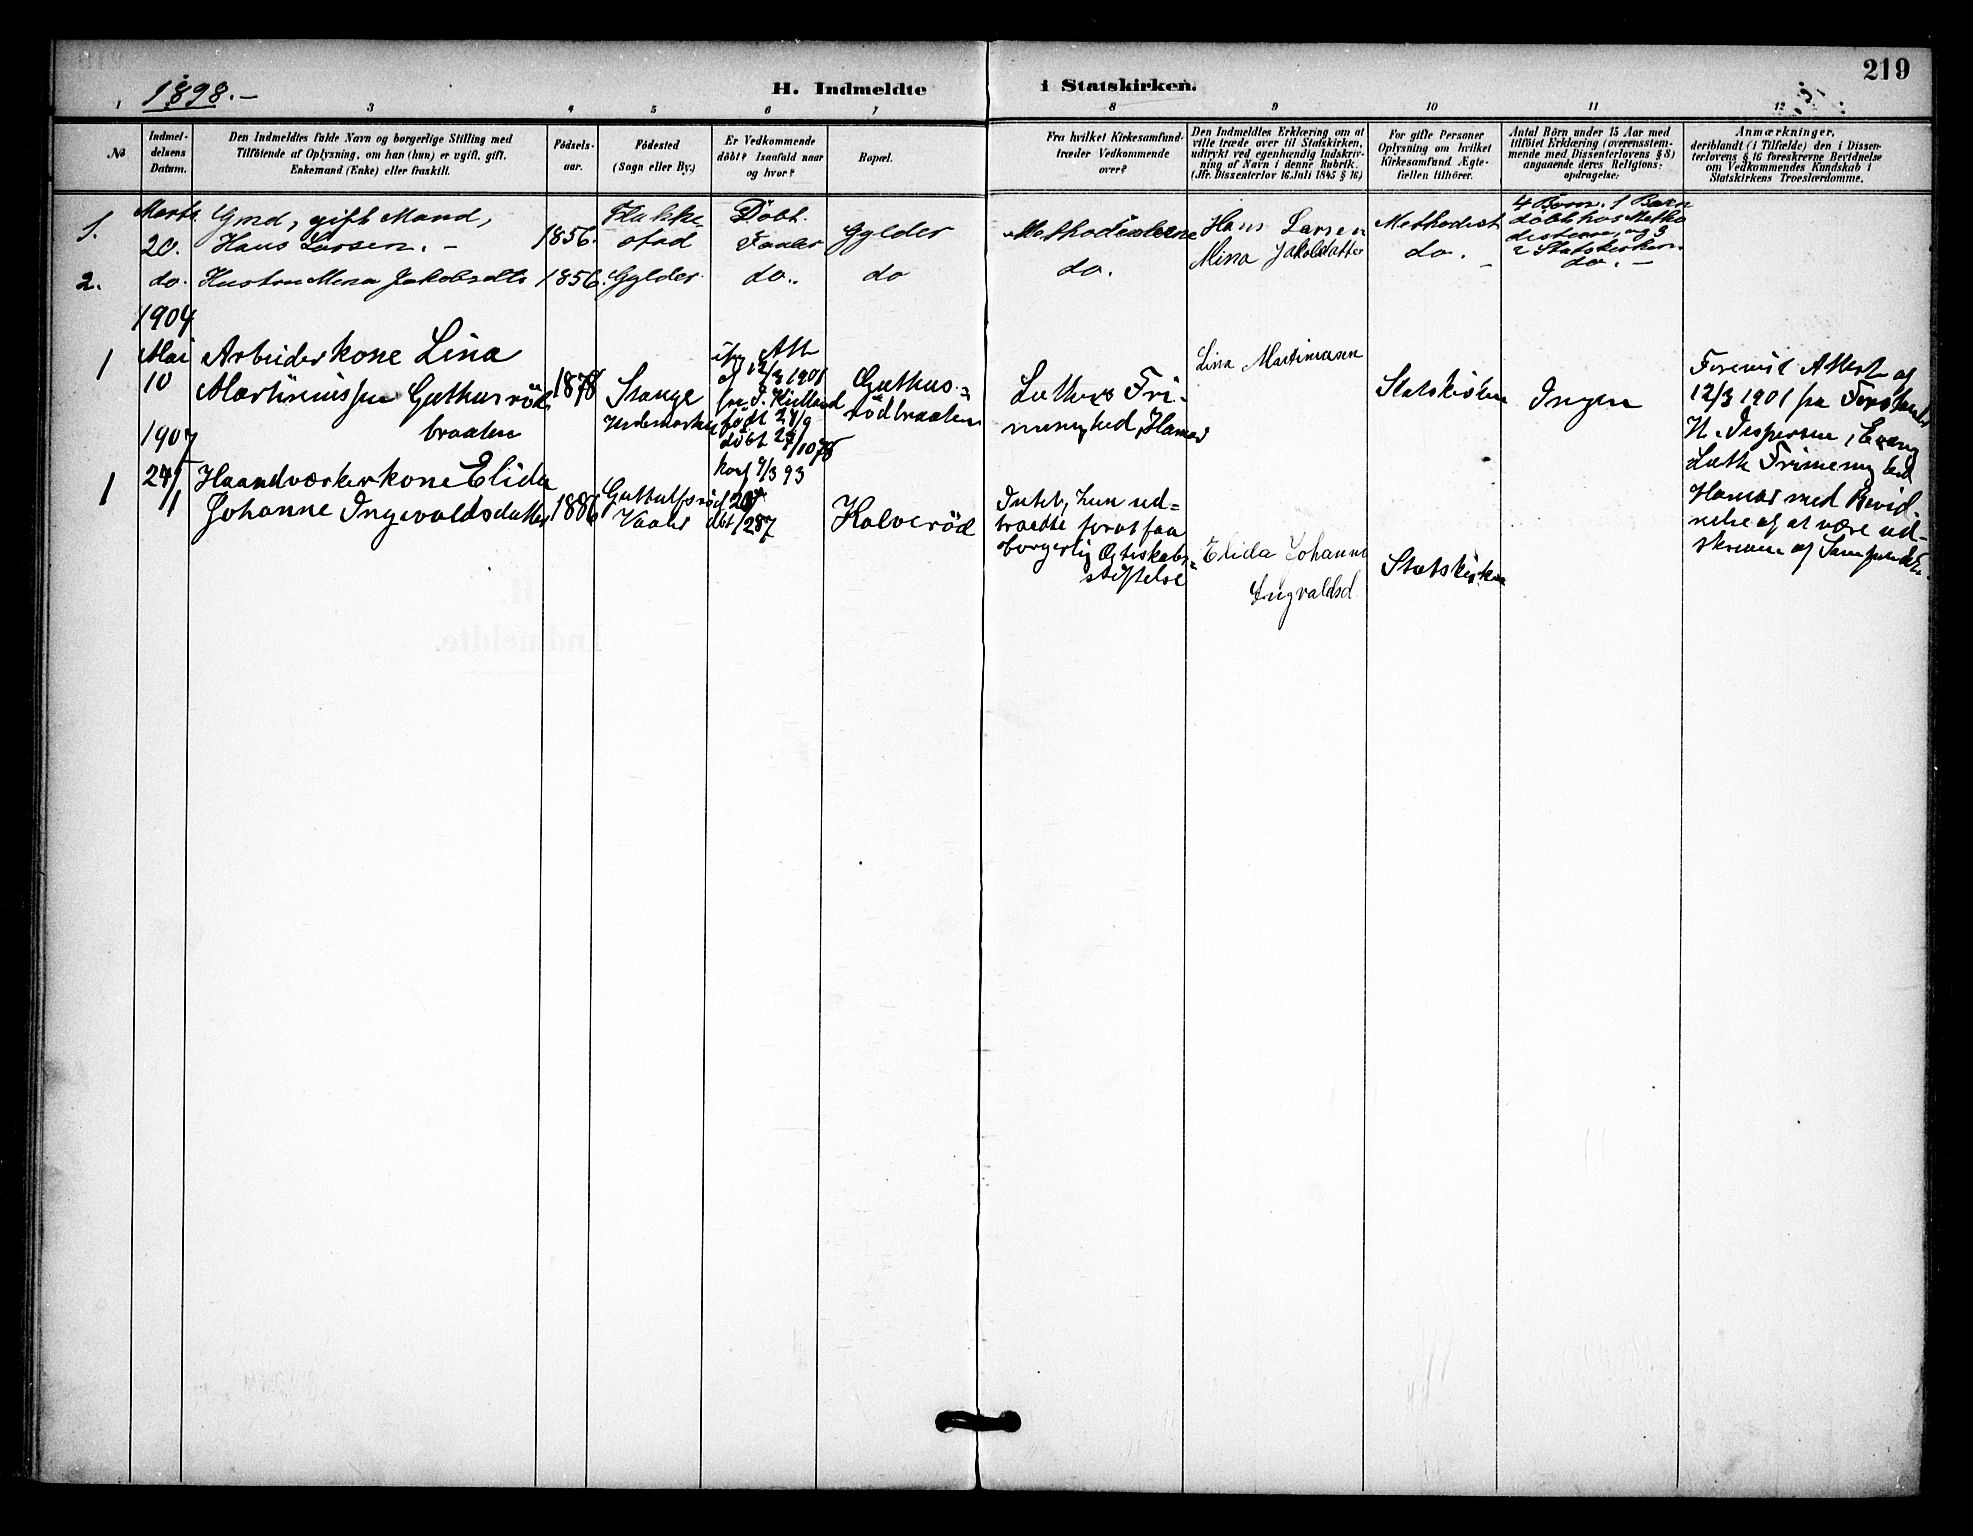 219
1898.-
H. Indmeldte i Statskirken.
1 3 4 5 6 7 8 9 10 11 12
No
Indmel-
delsens
Datum.
Den Indmeldtes fulde Navn og borgerlige Stilling med
Tilföiende af Oplysning, om han (hun) er ugift, gift,
Enkemand (Enke) eller fraskilt.
Födsels-
aar.
Födested
(Sogn eller By.)
Er Vedkommende
döbt? Isaafald naar
og hvor?
Bopæl.
Fra hvilket Kirkesamfund
træder Vedkommende
over?
Den Indmeldtes Erklæring om at
ville træde over til Statskirken,
udtrykt ved egenhændig Indskriv-
ning af Navn i denne Rubrik.
(Jfr. Dissenterlov 16. Juli 1845 § 16)
For gifte Personer
Oplysning om hvilket
Kirkesamfund Ægte-
fællen tilhörer.
Antal Börn under 15 Aar med
tilföiet Erklæring (overensstem-
mende med Dissenterlovens § 8)
angaaende deres Religions-
opdragelse:
Anmærkninger,
deriblandt (i Tilfælde) den i Dissen-
terlovens § 16 foreskrevne Bevidnelse
om Vedkommendes Kundskab i
Statskirkens Troeslærdomme.
1.
Marts
20.
Gmd, gift Mand,
Hans Larsen. -
1856.
Flakke-
stad
Döbt.
Gylder
Methodisterne
Hans Larsen
Methodist
4 Börn. 1 Barn
döbt hos Metho
disterne, og 3
i Statskirken
2.
do.
Hustru Mina Jakobsdtr
1856.
Gylder
do..
do
do.
Mina Jakobdatter
do. -
do. -
1904
1
Mai
10
Arbeiderkone Lina
Martinussen Guthusröd
braaten
1878
Stange
Hedemarken
Att
af 12/3 1901
fra Kielland
födt 24/9
döbt 27/10 78
konf 9/3 93
Guthus-
rödbraaten
Luthersk Fri-
menighed, Hamar
Lina Martinusen
Statskirken
Ingen
Foreviist Attest af
12/3 1901 fra Forstander
N. Jespersen, Evang
Luth Frimenighed
Hamar med Bevid-
nelse af at være ud-
skreven af Samfundet.
1907
1
Haandværkerkone Elida
Johanne Ingevaldsdatter
1886
Vaaler
Kalveröd
Intet, hun ud-
traadte forat faa
borgerlig Ægteskabs-
stiftelse
Elida Johanne
Ingvaldsd.
Statskirken